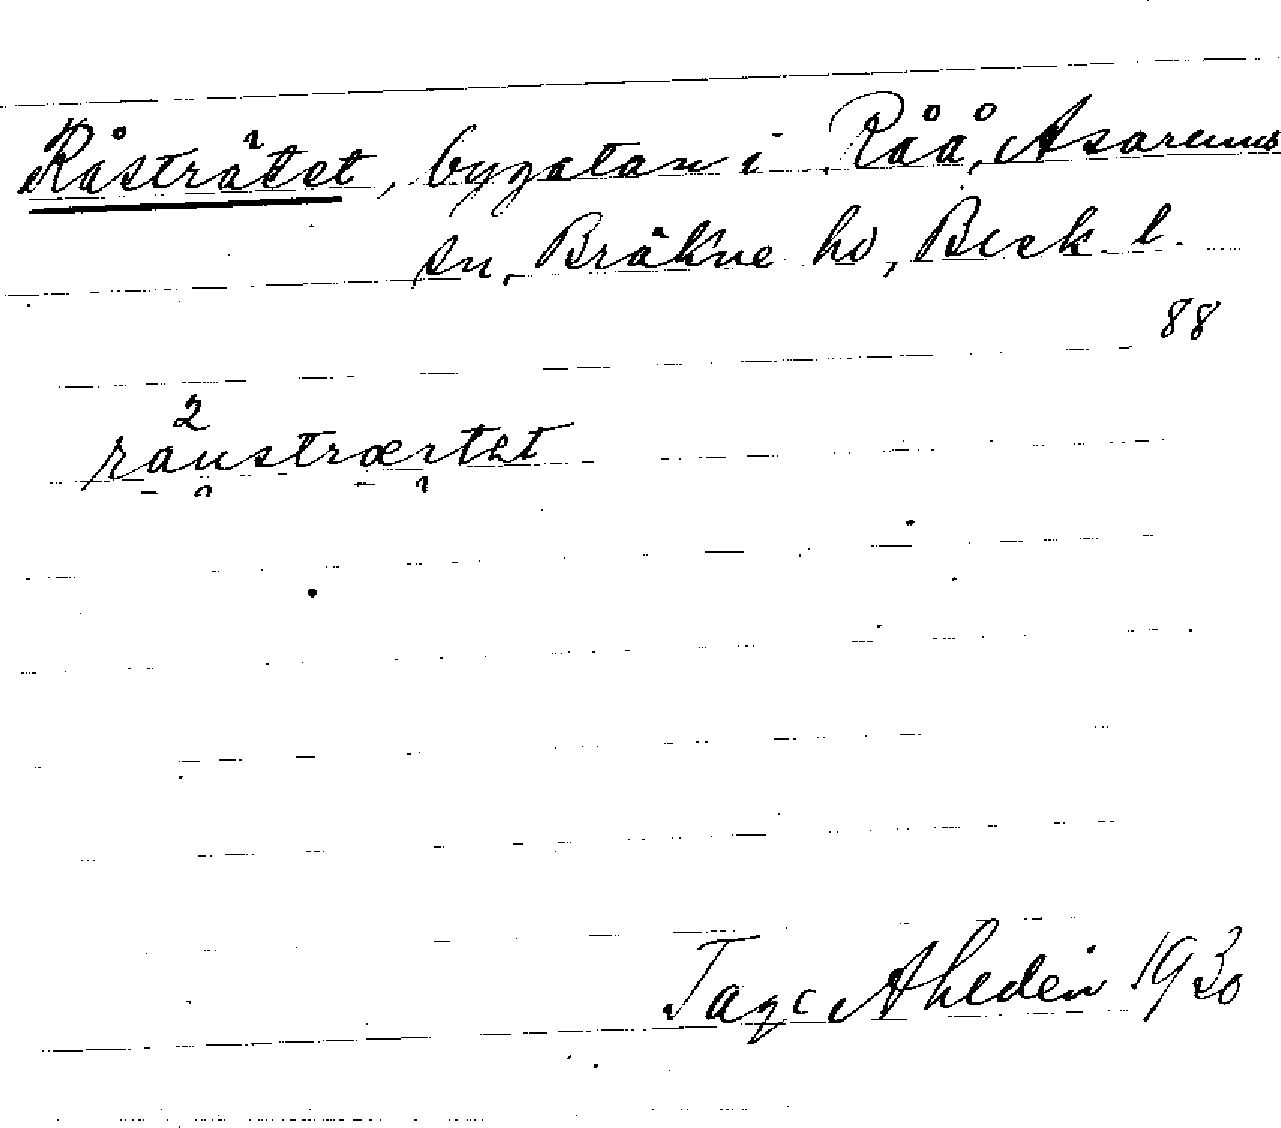 Råsträtet, bygatan i Råå, Asarums
sn, Bräkne hd, Blek. l.
88
2
räustrærtet
Tage Ahldén 1930